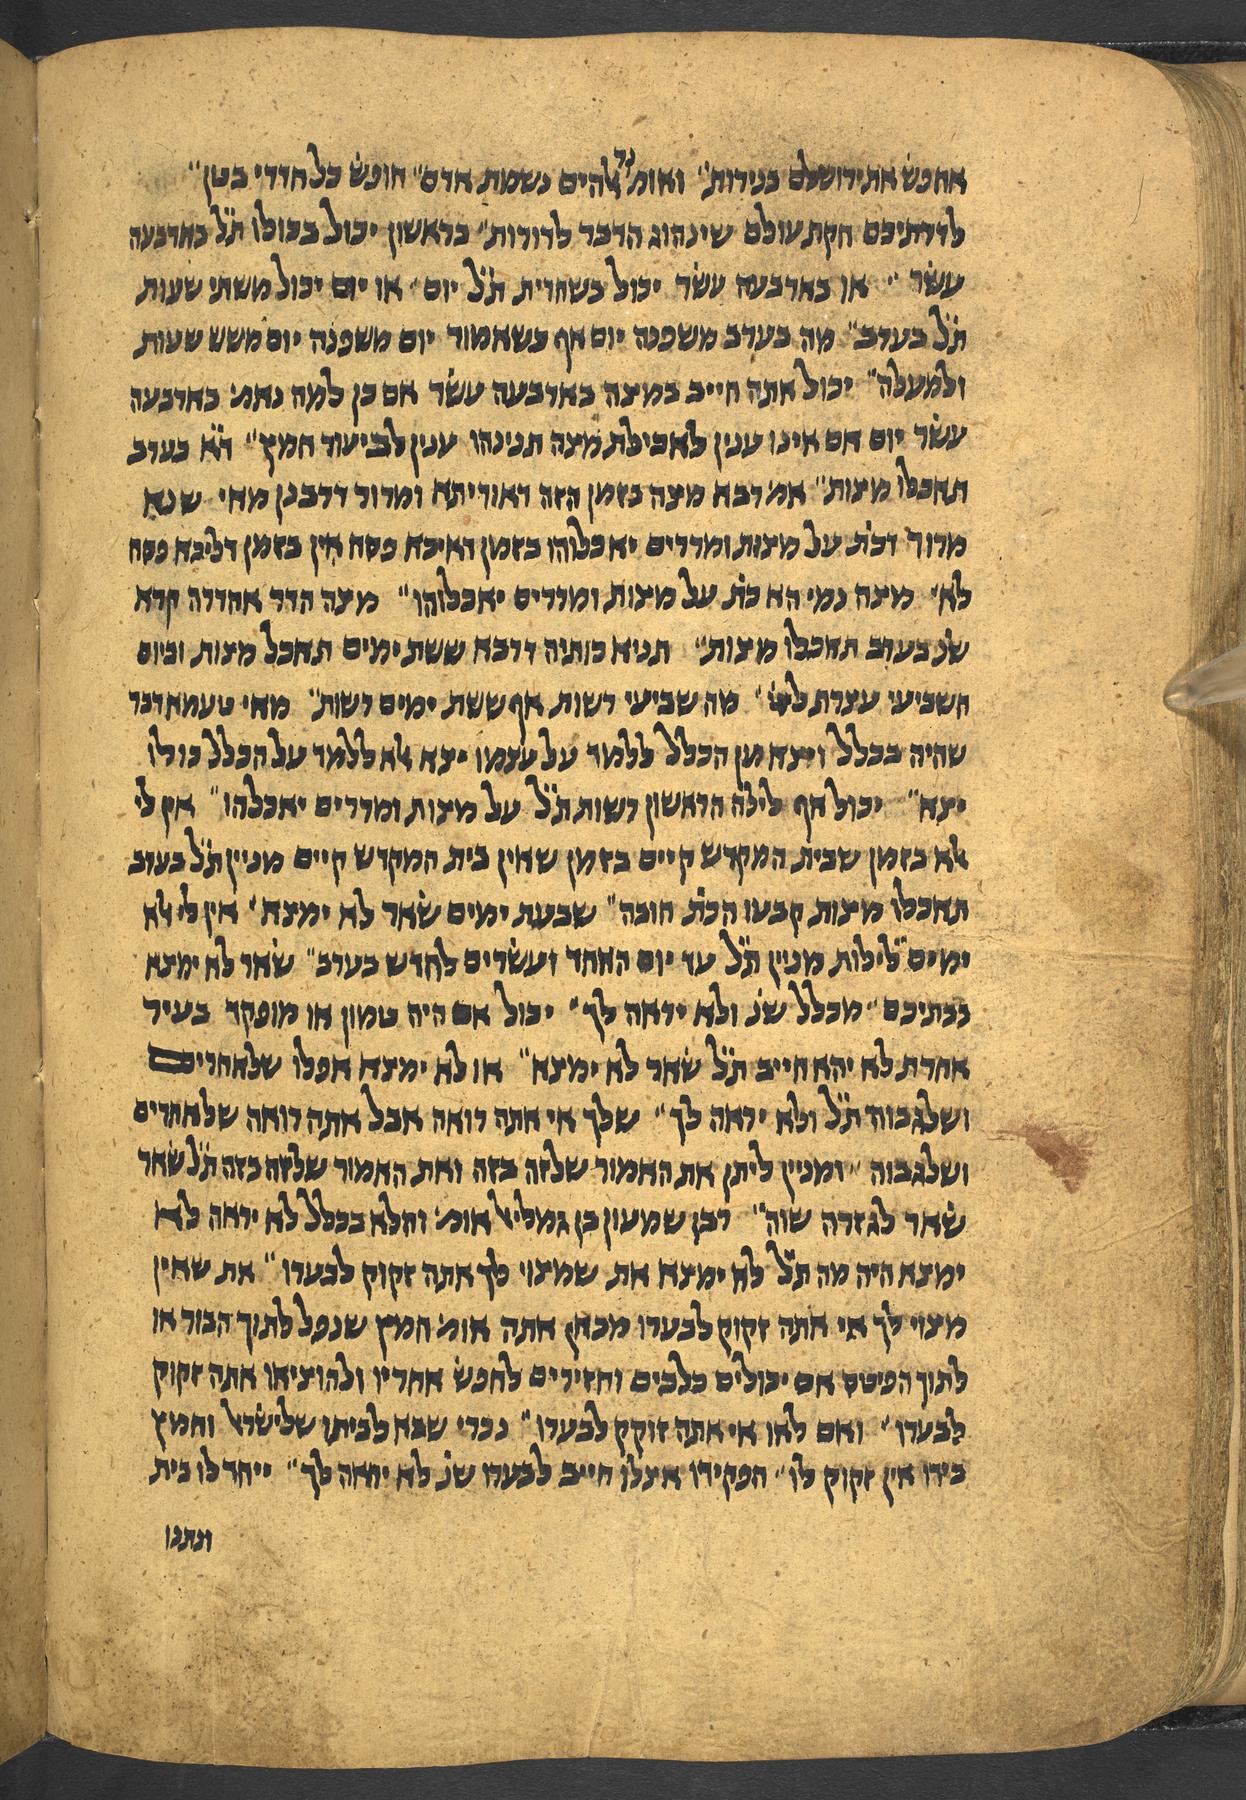 אחפש את ירושלם בנירות״ ואומ׳ נר אלהים נשמת אדם״ חופש כל חדרי בטן״
לדרתיכם חקת עולם שינהוג הדבר לדורות״ בראשון יכול בכולו ת״ל בארבעה
עשר״ או בארבעה עשר יכול בשחרית ת״ל יום״ או יום יכול משתי שעות
ת״ל בערב״ מה בערב משפנה יום אף כשאמור יום משפנה יום משש שעות
ולמעלה״ יכול אתה חייב במצה בארבעה עשר אם כן למה נאמ׳ בארבעה
עשר יום אם אינו ענין לאכילת מצה תנינהו ענין לביעור חמץ״ ד״א בערב
תאכלו מצות״ אמ׳ רבא מצה בזמן הזה דאוריתא ומרור דרבנן מאי שנא
מרור דכת׳ על מצות ומררים יאכלוהו בזמן דאיכא פסח אין בזמן דליכא פסח
לא״ מצה נמי הא כת׳ על מצות ומררים יאכלוהו״ מצה הדר אהדרה קרא
שנ׳ בערב תאכלו מצות״ תניא כותיה דרבא ששת ימים תאכל מצות וביום
השביעי עצרת לי״י״ מה שביעי רשות אף ששת ימים רשות״ מאי טעמא דבר
שהיה בכלל ויצא מן הכלל ללמד על עצמו יצא אלא ללמד על הכלל כולו
יצא״ יכול אף לילה הראשון רשות ת״ל על מצות ומררים יאכלהו״ אין לי
אלא בזמן שבית המקדש קיים בזמן שאין בית המקדש קיים מניין ת״ל בערב
תאכלו מצות קבעו הכת׳ חובה״ שבעת ימים שאר לא ימצא״ אין לי אלא
ימים״ לילות מניין ת״ל עד יום האחד ועשרים לחדש בערב״ שאר לא ימצא
בבתיכם״ מכלל שנ׳ ולא יראה לך״ יכול אם היה טמון או מופקד בעיר
אחרת לא יהא חייב ת״ל שאר לא ימצא״ או לא ימצא אפלו שלאחרים
ושלגבוה ת״ל ולא יראה לך״ שלך אי אתה רואה אבל אתה רואה שלאחרים
ושלגבוה״ ומניין ליתן את האמור שלזה בזה ואת האמור שלזה בזה ת״ל שאר
שאר לגזרה שוה״ רבן שמעון בן גמליאל אומ׳ והלא בכלל לא יראה לא
ימצא היה מה ת״ל לא ימצא את שמצוי לך אתה זקוק לבערו״ את שאין
מצוי לך אי אתה זקוק לבערו מכאן אתה אומ׳ חמץ שנפל לתוך הבור או
לתוך הפיטס אם יכולים כלבים וחזירים לחפש אחריו ולהוציאו אתה זקוק
לבערו״ ואם לאו אי אתה זוקק לבערו״ נכרי שבא לביתו שלישראל וחמץ
בידו אין זקוק לו״ הפקידו אצלו חייב לבערו שנ׳ לא יראה לך״ ייחד לו בית
ונתנו